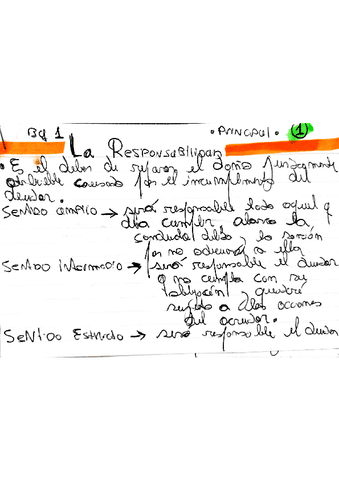 Bq 1 • Principal • 1
La Responsabilidad
• Es el deber de reparar el daño juridicamente
atribuible causado por el incumplimiento del
deudor.
Sentido amplio → será responsable todo aquel q
deba cumplir
conducta debida o la sanción
por no adecuarse a ella
Sentido intermedio → será responsable el deudor
q no cumpla con su
obligación y quedará
sujeto a las acciones
del acreedor.
Sentido Estricto → será responsable el deudor